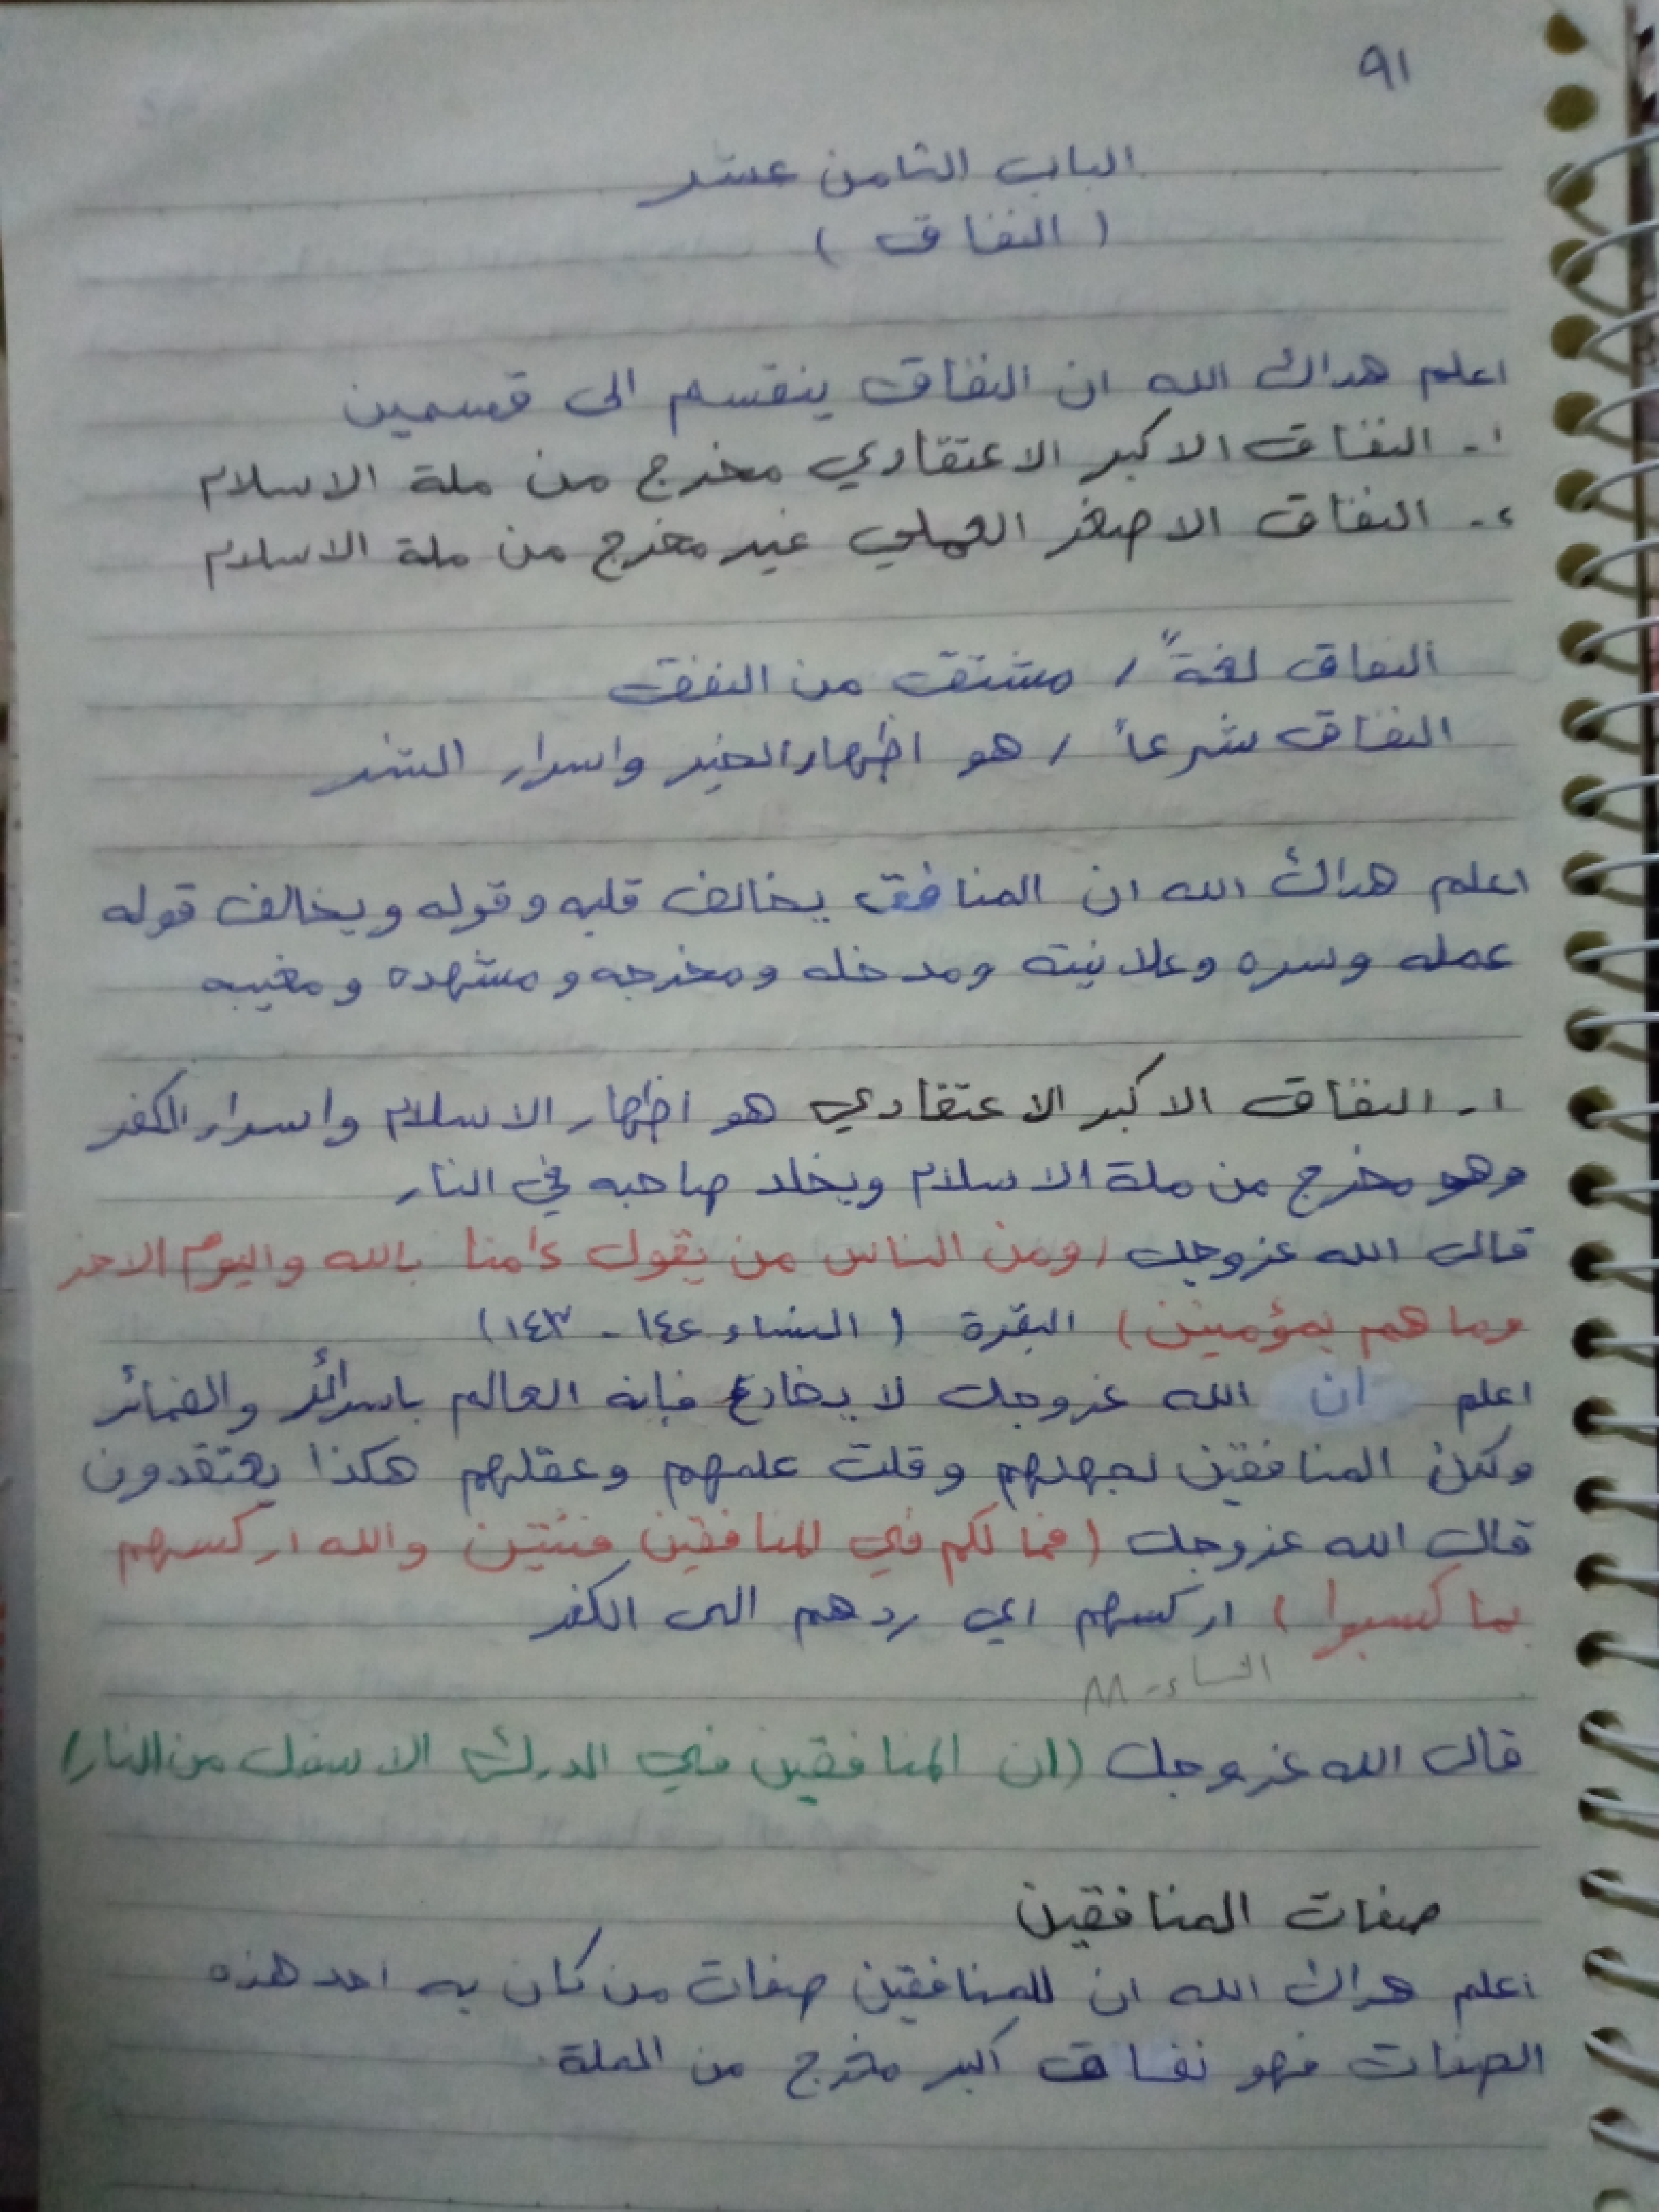 ٩١
الباب الثامن عشر
( النفاق )
اعلم هداك الله ان النفاق ينقسم الى قسمين
١- النفاق الاكبر الاعتقادي مخرج من ملة الاسلام
٢- النفاق الاصغر العملي غير مخرج من ملة الاسلام
النفاق لغةً / مشتق من النفق
النفاق شرعاً / هو اظهار الخير واسرار الشر
اعلم هداك الله ان المنافق يخالف قلبه وقوله ويخالف قوله
عمله وسره وعلانيته ومدخله ومخرجه ومشهده ومغيبه
١- النفاق الاكبر الاعتقادي هو اظهار الاسلام واسرار الكفر
وهو مخرج من ملة الاسلام ويخلد صاحبه في النار
قال الله عزوجل (ومن الناس من يقول ءامنا بالله واليوم الاخر
وما هم بمؤمنين) البقرة ( النساء ١٤٢ - ١٤٣)
اعلم ان الله عزوجل لا يخادع فإنه العالم باسرائر والضمائر
ولكن المنافقين لجهلهم وقلت علمهم وعقلهم هكذا يعتقدون
قال الله عزوجل (فما لكم في المنافقين فئتين والله اركسهم
بما كسبوا ) اركسهم اي ردهم الى الكفر
النساء - ٨٨
قال الله عزوجل (ان المنافقين في الدرك الاسفل من النار)
صفات المنافقين
اعلم هداك الله ان للمنافقين صفات من كان به احد هذه
الصفات فهو نفاق اكبر مخرج من الملة